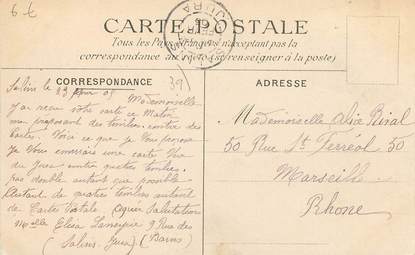 6 €
CARTE POSTALE
Tous les Pays étrangers n'acceptant pas la
correspondance au recto (se renseigner à la poste)
JURA
CORRESPONDANCE
39
ADRESSE
Salins le 23
Mademoiselle
j'ai reçu votre carte ce Matin
me proposant des timbres contre des
Cartes. Voici ce que je Vous propose
Je Vous envoies une carte Vue
du Jura contre quatre timbres
pas double autant que possible
Autant de quatre timbres autant
de Carte Postale Salutations
Melle Elisa 9 Rue des
Barns
(Salins Jura)
Mademoiselle Alice Rival
50 Rue St Ferréol 50
Marseille
Rhone